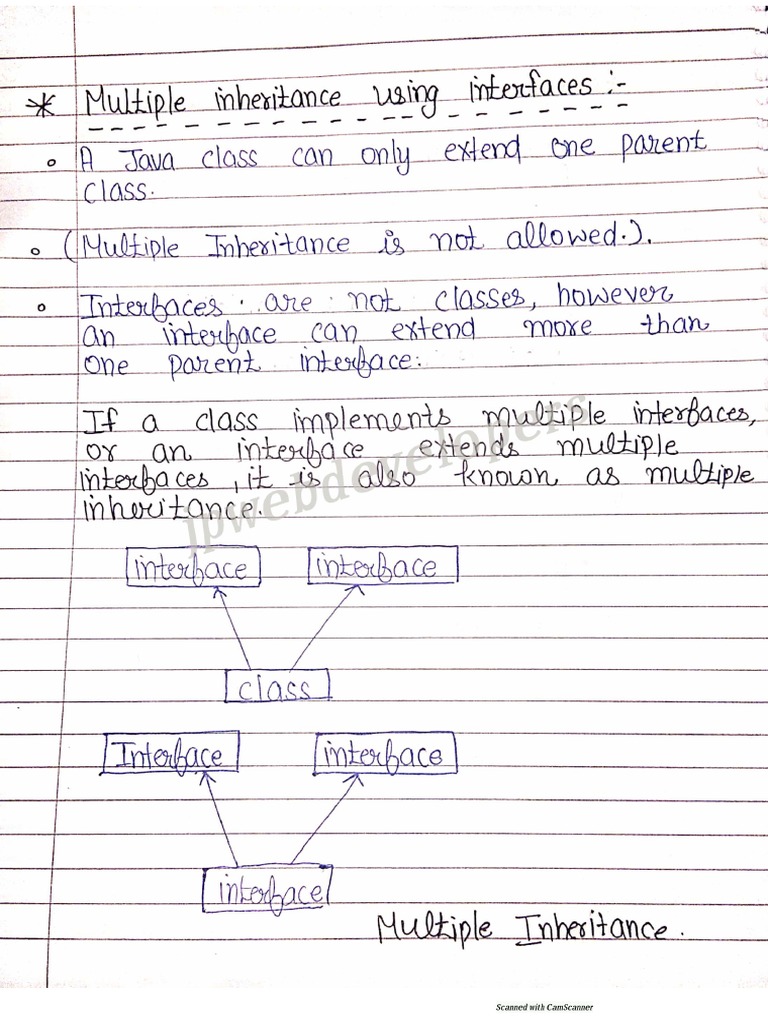 * Multiple inheritance using interfaces :-
o A Java class can only extend one parent
class.
o (Multiple Inheritance is not allowed.).
o Interfaces are not classes, however
an interface can extend more than
one parent interface.
If a class implements multiple interfaces,
or an interface extends multiple
interfaces, it is also known as multiple
inheritance.
jpwebdevelopers
interface interface
class
Interface interface
interface
Multiple Inheritance.
Scanned with CamScanner